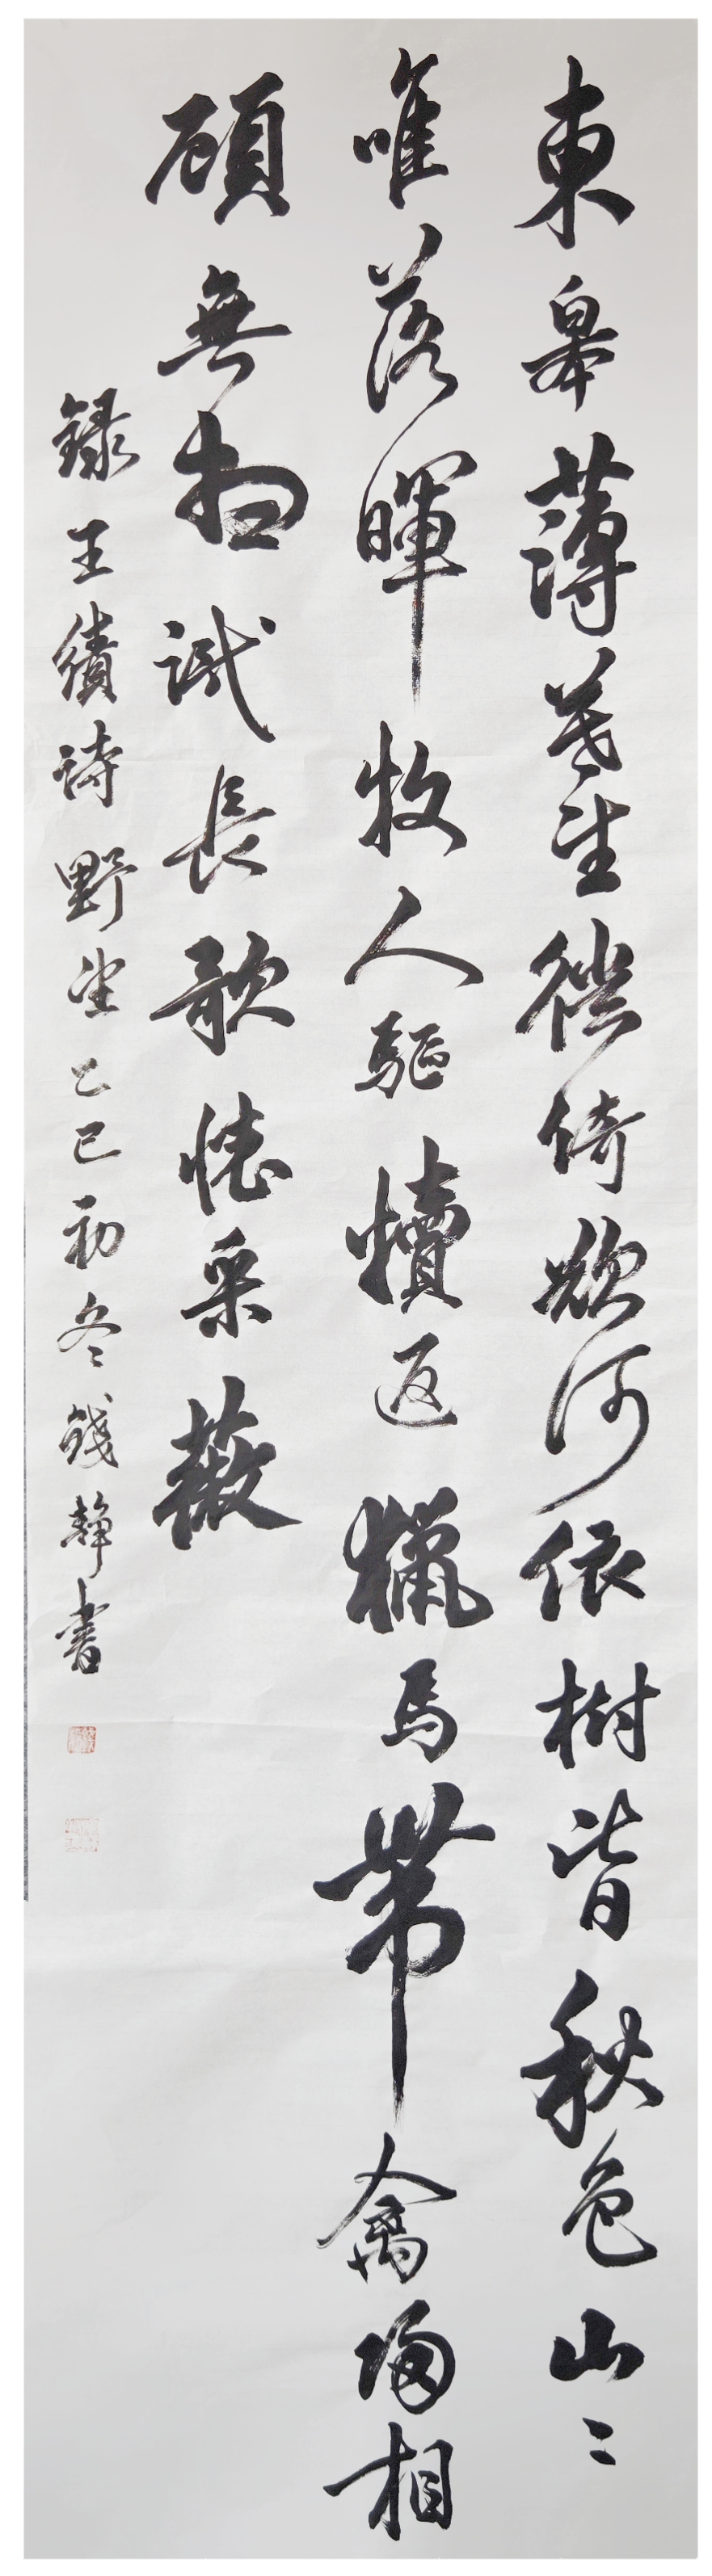 東皋薄暮望徙倚欲何依樹皆秋色山〻
唯落暉牧人驅犢返獵馬帶禽歸相
顧無相識長歌懷采薇
錄王績詩野望乙巳初冬錢靜書